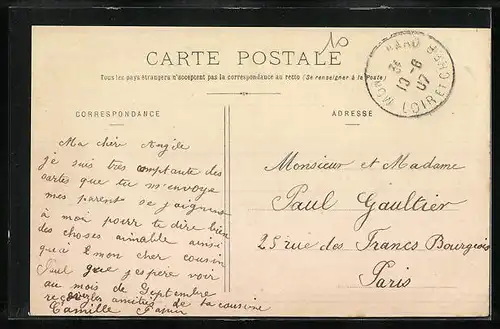 10
CARTE POSTALE
Tous les pays étrangers n'acceptent pas la correspondance au recto (Se renseigner à la Poste)
CORRESPONDANCE
ADRESSE
Ma chère Angèle
je suis très comptante des
cartes que tu m'envoye
mes parent se joignent
à moi pourr te dire bien
des choses aimable ainsi
qu'à Emon cher cousin
Paul que j'espere voir
au mois de Septembre
reçois les amitiés de ta cousine
Camille
Monsieur et Madame
Paul Gaultier
25 rue des Francs Bourgeois
Paris
10-8
07
LOIR ET CHER